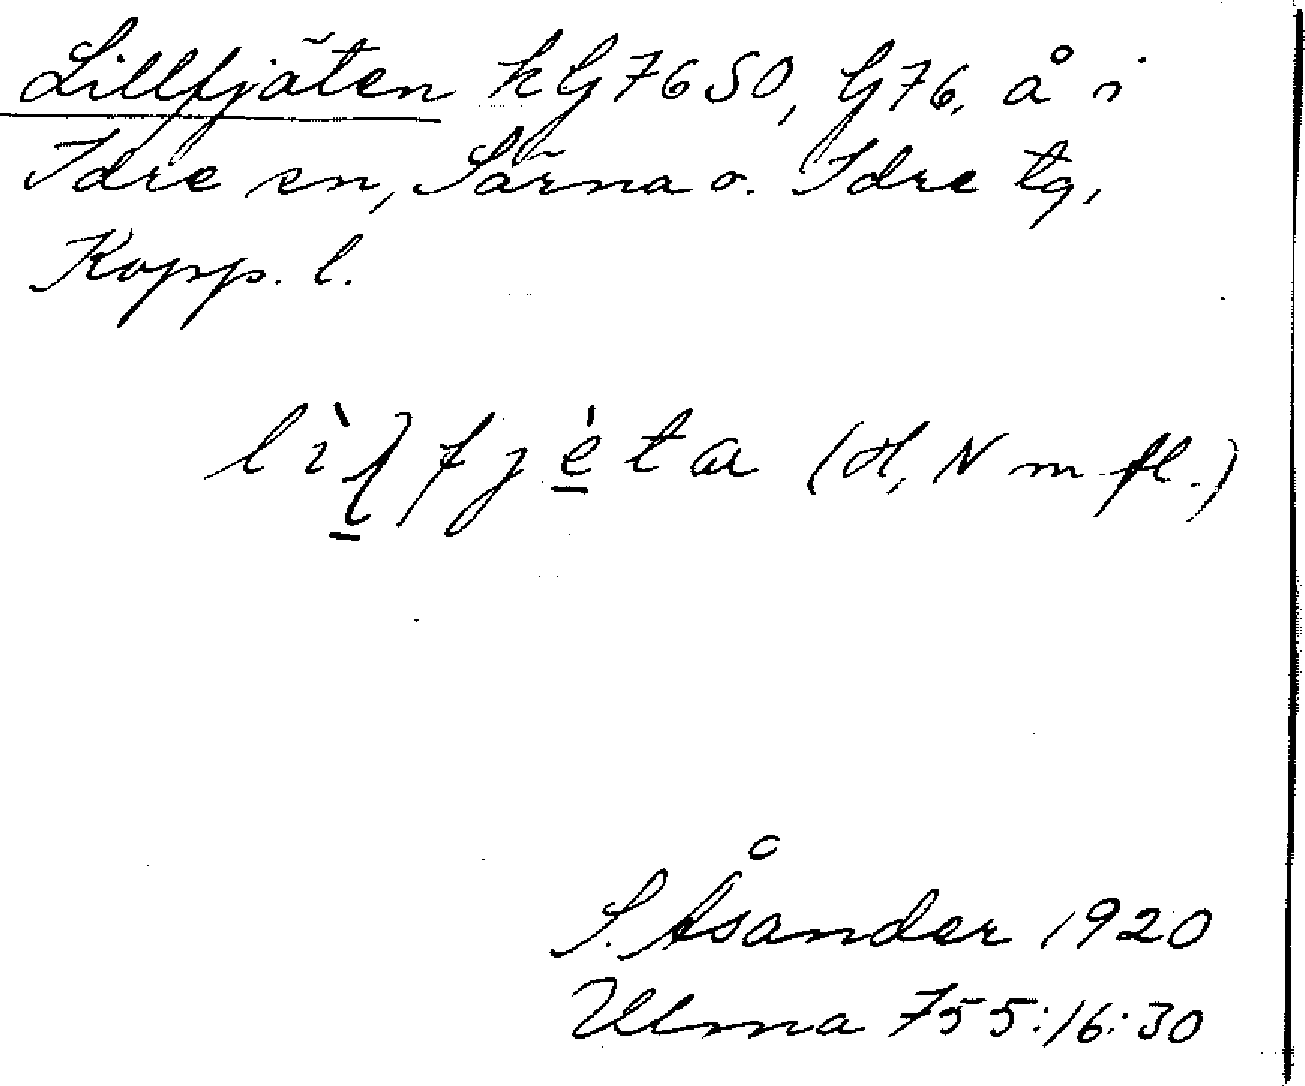 Lillfjäten kG76SO, G76, å i
Idre sn, Särna o. Idre tg,
Kopp. l.
(H, N m fl.)
S. Åsander 1920
Ulma 755:16:30